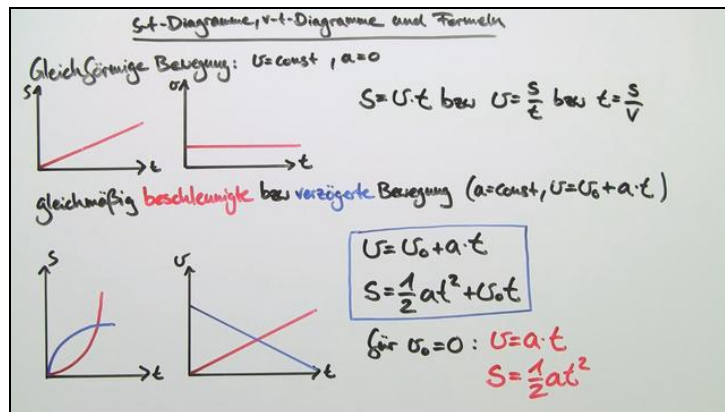 s-t-Diagramme, v-t-Diagramme und Formeln
Gleichförmige Bewegung: v=const, a=0
s
t
v
t
s=v·t bzw v=s/t bzw t=s/v
gleichmäßig beschleunigte bzw verzögerte Bewegung (a=const, v=v₀+a·t)
s
t
v
t
v=v₀+a·t
s=½at²+v₀t
für v₀=0: v=a·t
s=½at²